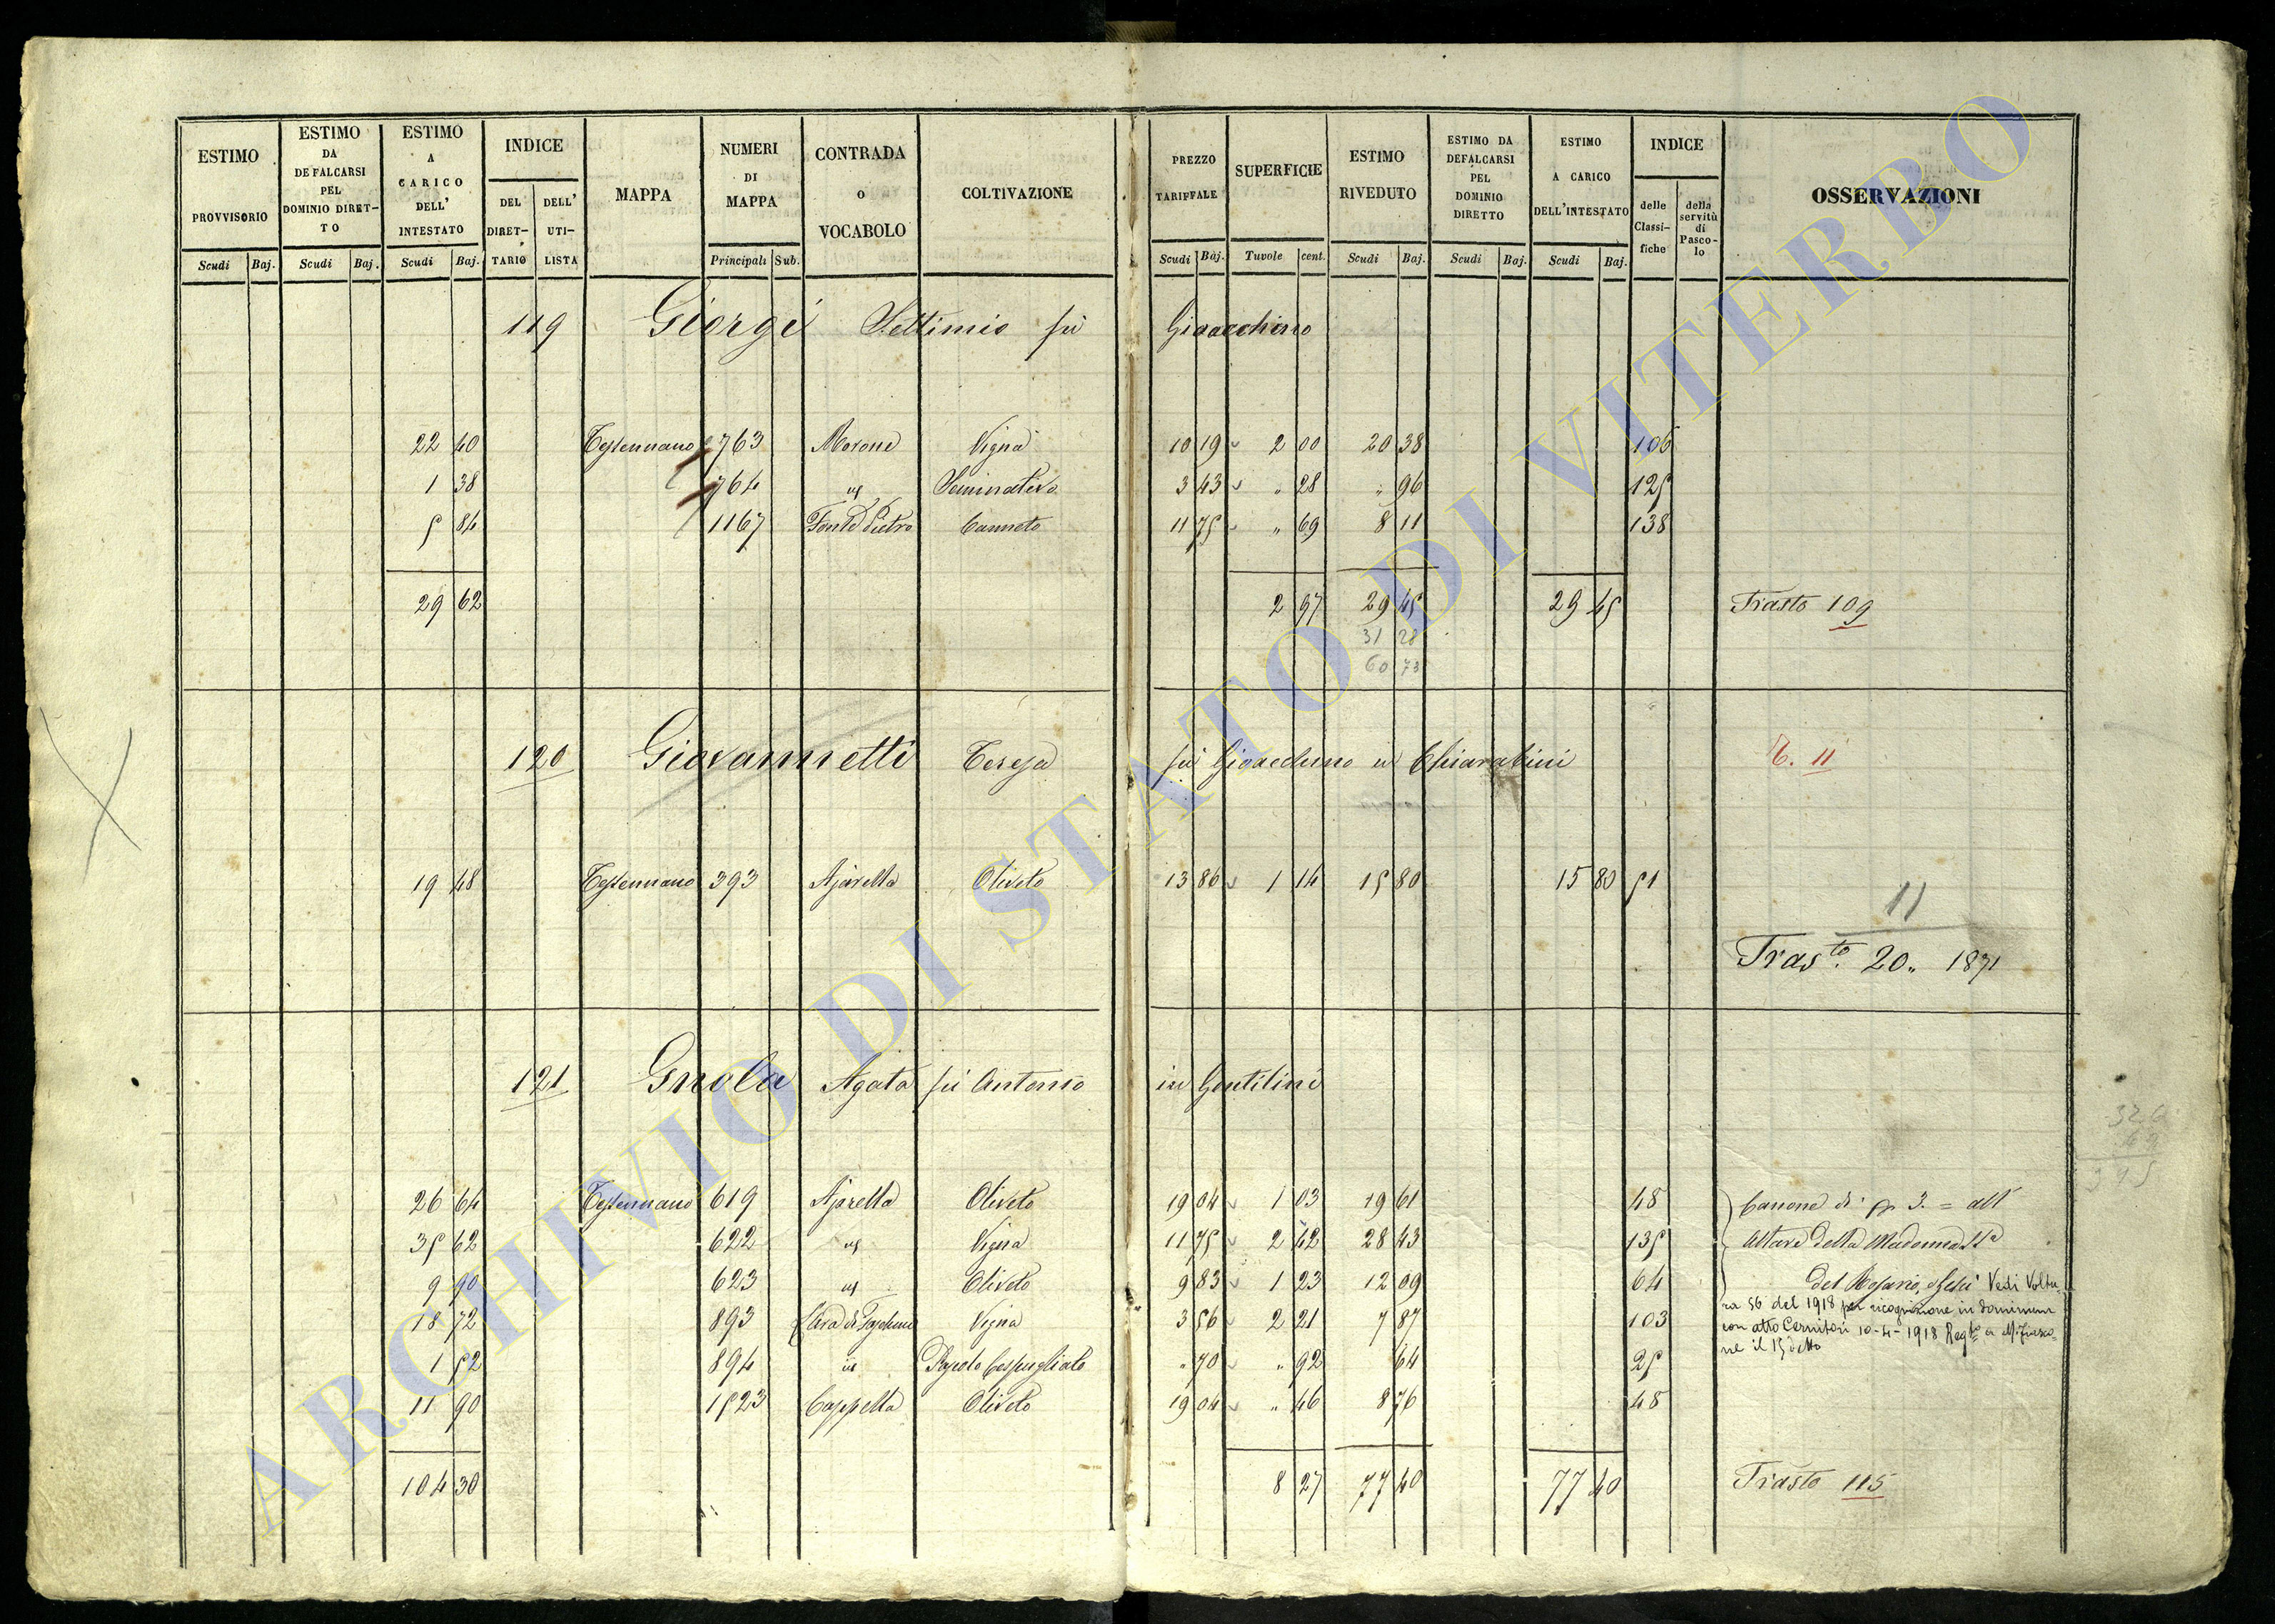 ESTIMO PROVVISORIO
Scudi Baj.
ESTIMO DA DEFALCARSI PEL DOMINIO DIRET-TO
Scudi Baj.
ESTIMO A CARICO DELL' INTESTATO
Scudi Baj.
INDICE
DEL DIRET-TARIO
DELL' UTI-LISTA
MAPPA
NUMERI DI MAPPA
Principali Sub.
CONTRADA o VOCABOLO
COLTIVAZIONE
PREZZO TARIFFALE
Scudi Baj.
SUPERFICIE
Tavole cent.
ESTIMO RIVEDUTO
Scudi Baj.
ESTIMO DA DEFALCARSI PEL DOMINIO DIRETTO
Scudi Baj.
ESTIMO A CARICO DELL'INTESTATO
Scudi Baj.
INDICE
delle Classi-fiche
della servitù di Pasco-lo
OSSERVAZIONI
119 Giorgi Settimio fù Gioacchino
22 40 Tessennano 763 Morone Vigna 10 19 2 00 20 38 106
1 38 764 id Seminativo 3 43 " 28 " 96 125
5 84 1167 Fonte Pietro Canneto 11 75 " 69 8 11 138
29 62 2 97 29 45 29 45 Trasto 109
31 28
60 73
120 Giovannetti Teresa fù Gioacchino in Chiarabini T. 11
19 48 Tessennano 393 Ajarella Oliveto 13 86 1 14 15 80 15 80 51
11
Trasto. 20,, 1871
121 Gnola Agata fù Antonio in Gentilini
26 64 Tessennano 619 Ajarella Oliveto 19 04 1 03 19 61 48 Canone di 3. = all'
35 62 622 id Vigna 11 75 2 42 28 43 135 Altare della Madonna SSa
9 90 623 id Oliveto 9 83 1 23 12 09 64 del Rosario, Vedi Voltu-
18 72 893 Vigna 3 56 2 21 7 87 103 ra 56 del 1918 per ricognizione in dominum
con atto Cernitori 10-4-1918 Regto a M.Fiasco-
ne il 15 detto
1 52 894 id Pascolo Cespugliato " 70 " 92 64 25
11 90 1523 Cappella Oliveto 19 04 " 46 8 76 48
104 30 8 27 77 40 77 40 Trasto 115
ARCHIVIO DI STATO DI VITERBO